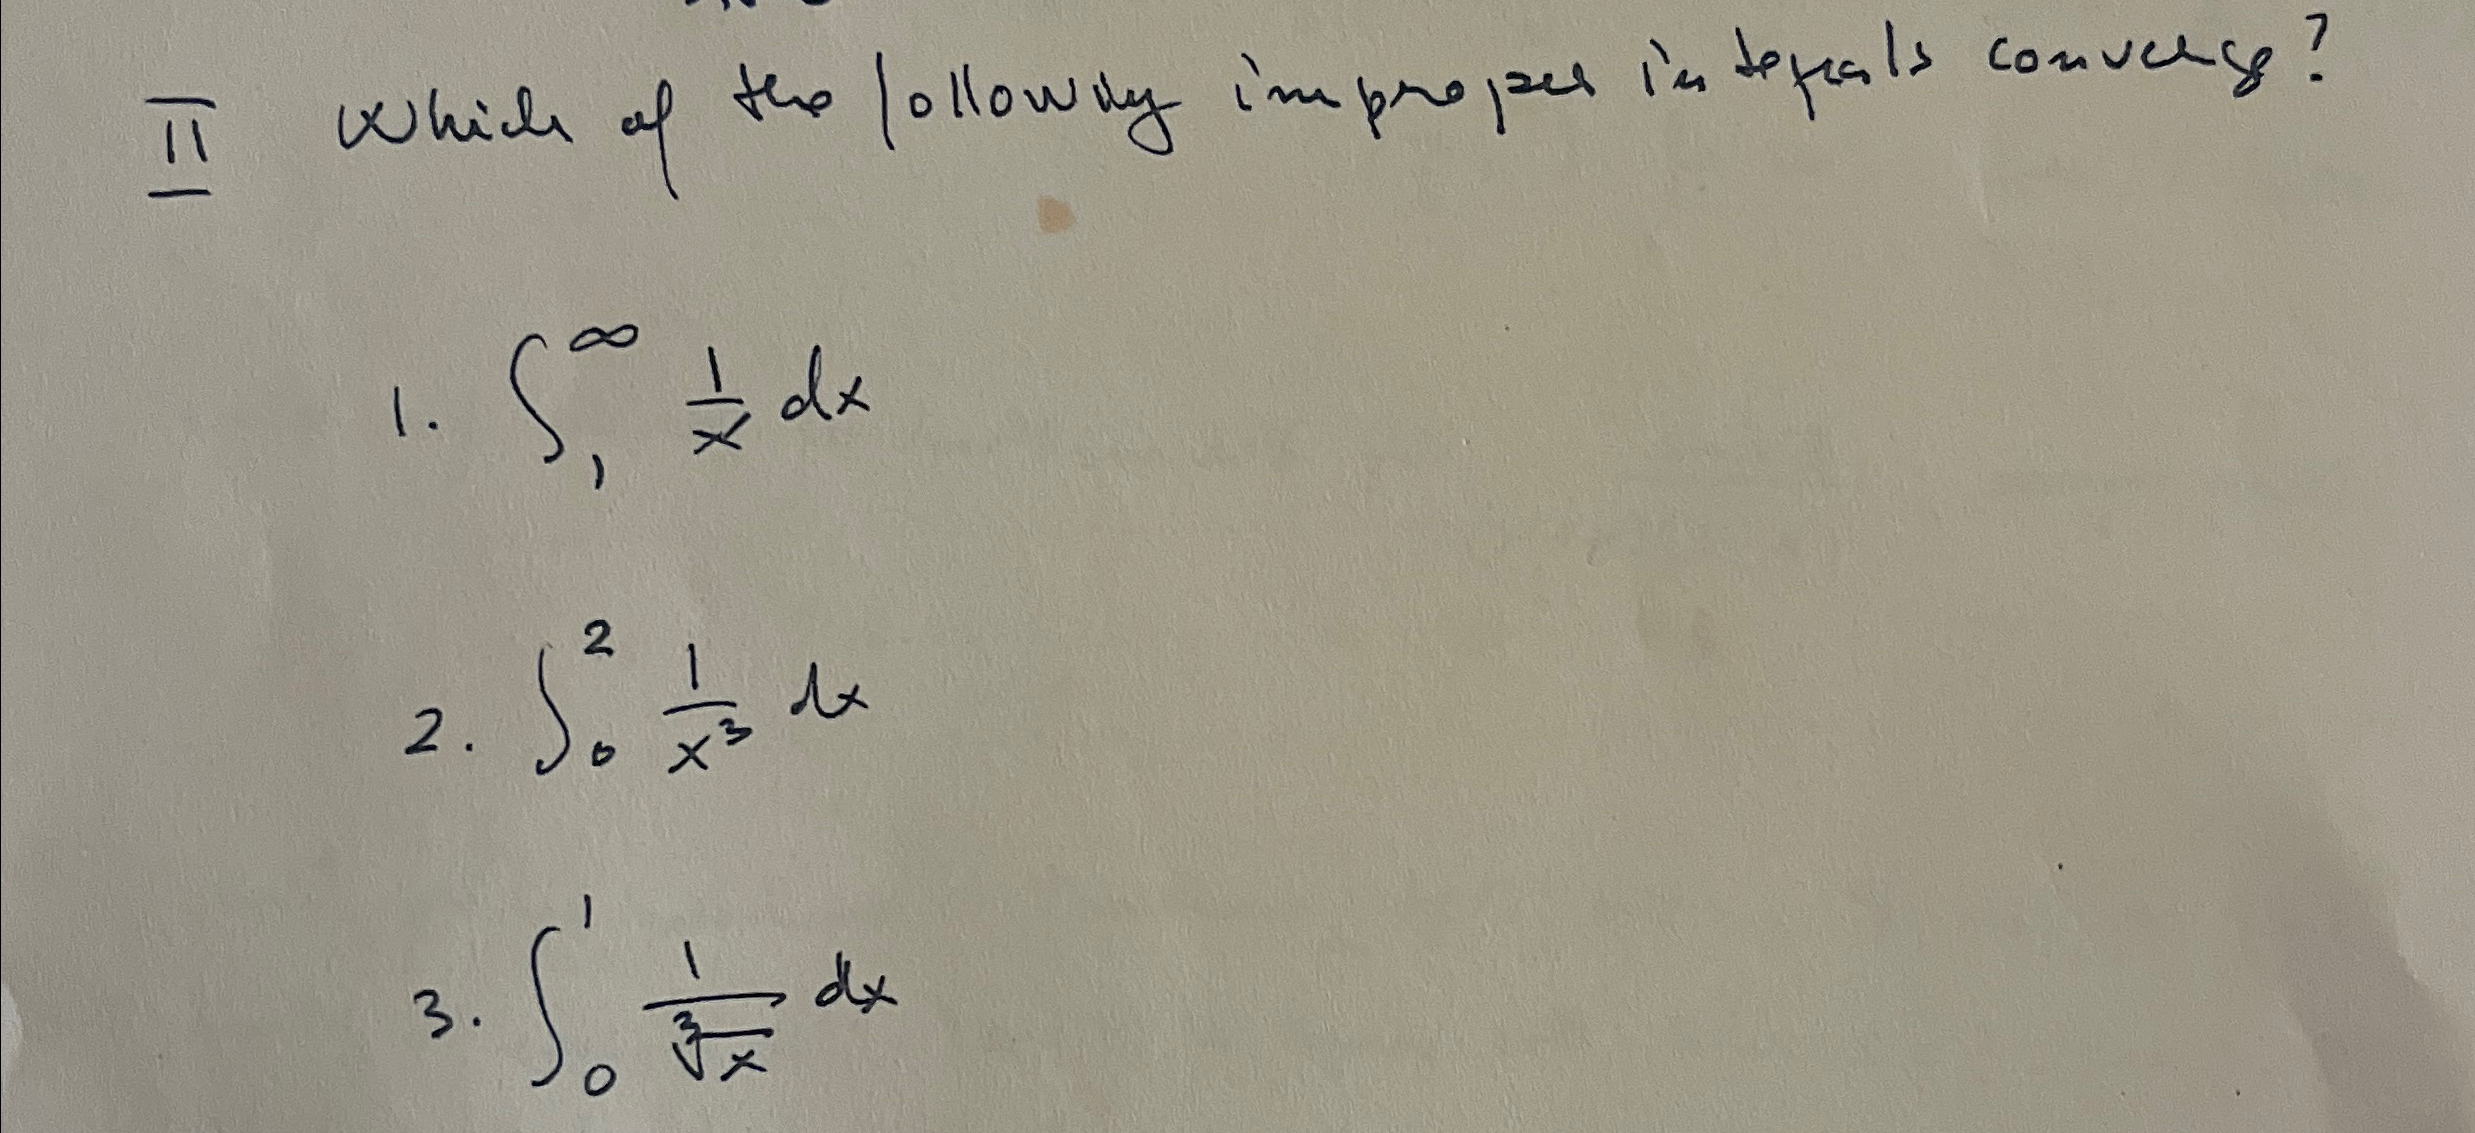 II Which of the following improper integrals converge?
1. ∫₁^∞ 1/x dx
2. ∫₀² 1/x³ dx
3. ∫₀¹ 1/∛x dx